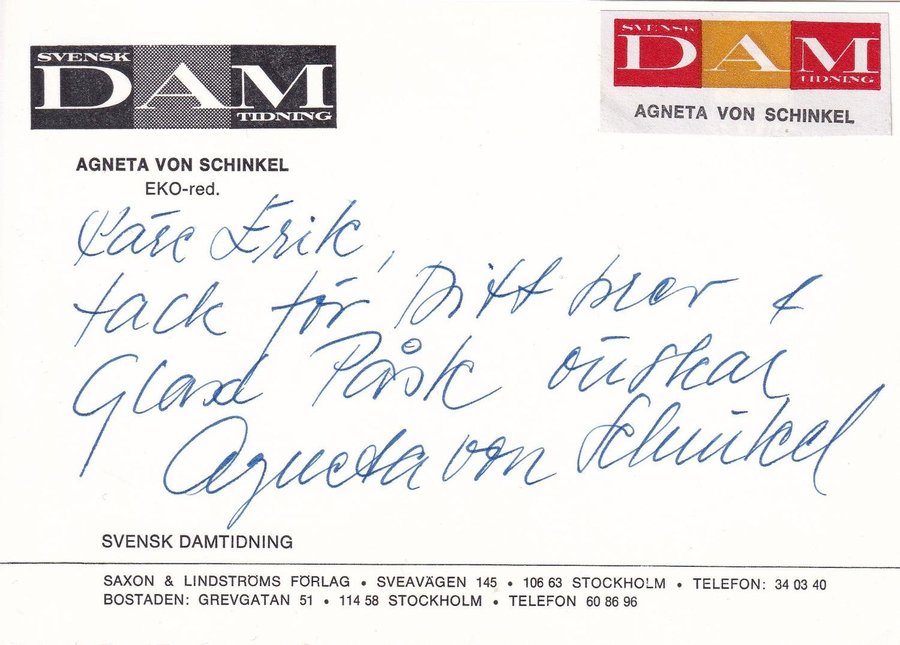 SVENSK
DAM
TIDNING
SVENSK
DAM
TIDNING
AGNETA VON SCHINKEL
AGNETA VON SCHINKEL
EKO-red.
Käre Erik,
tack för Ditt brev &
Glad Påsk önskar
Agneta von Schinkel
SVENSK DAMTIDNING
SAXON & LINDSTRÖMS FÖRLAG • SVEAVÄGEN 145 • 106 63 STOCKHOLM • TELEFON: 34 03 40
BOSTADEN: GREVGATAN 51 • 114 58 STOCKHOLM • TELEFON 60 86 96